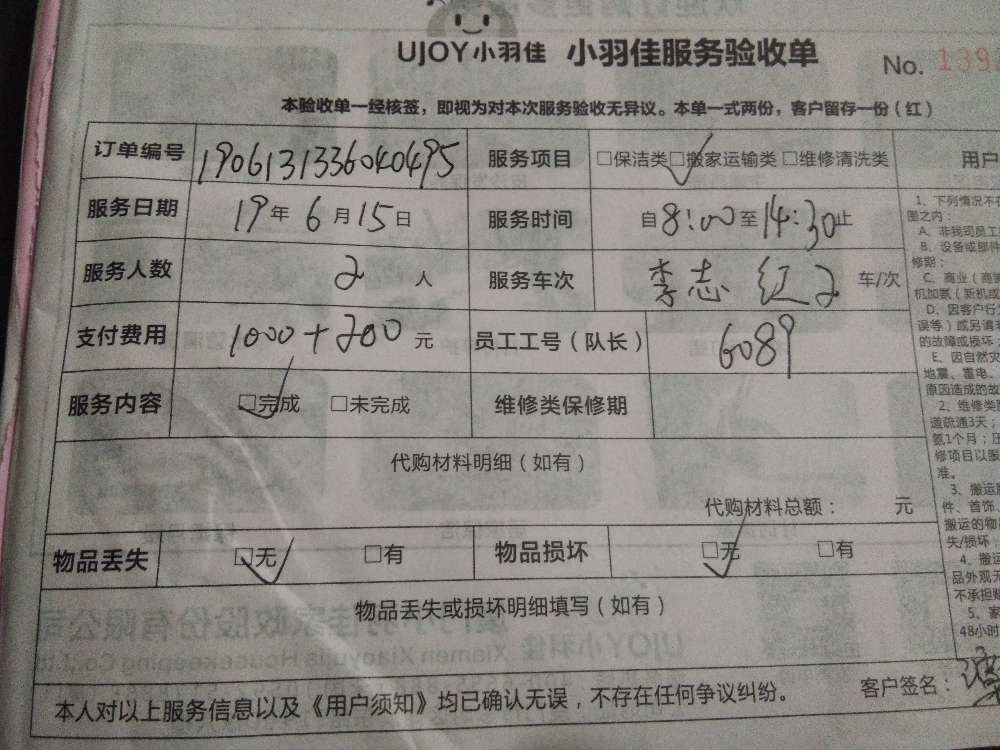 UJOY小羽佳 小羽佳服务验收单 No. 139
本验收单一经核签，即视为对本次服务验收无异议。本单一式两份，客户留存一份（红）
订单编号 1906131336040495 服务项目 □保洁类 □搬家运输类 □维修清洗类
服务日期 19年6月15日 服务时间 自8:00至14:30止
服务人数 2人 服务车次 李志红2车/次
支付费用 1000+200元 员工工号（队长） 6089
服务内容 □完成 □未完成 维修类保修期
代购材料明细（如有）
代购材料总额： 元
物品丢失 □无 □有 物品损坏 □无 □有
物品丢失或损坏明细填写（如有）
本人对以上服务信息以及《用户须知》均已确认无误，不存在任何争议纠纷。 客户签名：
用户
1、下列情况不在
围之内：
A、非我司员工
B、设备或部件
修期：
C、商业（商
机加氨（新机或
D、因客户行
误等）或另请
的故障或损坏；
E、因自然灾
地震、雷电、
原因造成的故
2、维修类
道疏通3天；
氨1个月；压
修项目以服
准。
3、搬运
件、首饰、
搬运的物
失/损坏；
4、搬运
品外观无
不承担赔
5、家
48小时